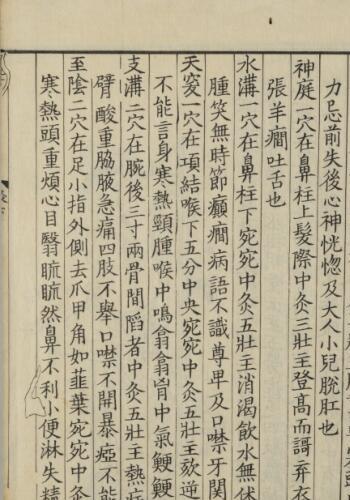 力忌前失後心神恍惚及大人小兒脫肛也
神庭一穴在鼻柱上髮際中灸三壯主登高而謌弃衣
張羊癇吐舌也
水溝一穴在鼻柱下宛宛中灸五壯主消渴飲水無休
腫笑無時節癲癇病語不識尊卑及口噤牙関
天突一穴在項結喉下五分中央宛宛中灸五壯主欬逆
不能言身寒熱頸腫喉中鳴翕翕胷中氣鯁鯁
支溝二穴在腕後三寸兩骨間陷者中灸五壯主熱病
臂酸重脇腋急痛四肢不舉口噤不開暴瘂不能
至陰二穴在足小指外側去爪甲角如韮葉宛宛中灸
寒熱頭重煩心目翳䀮䀮然鼻不利小便淋失精